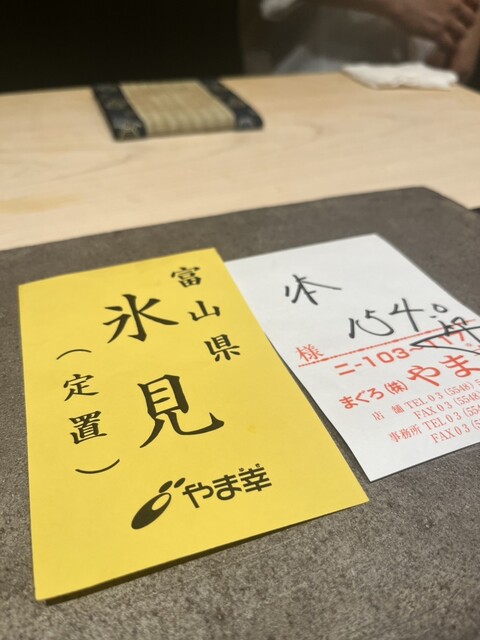 富山県
氷見
（定置）
やま幸
本
154.0
様
ニ-103
まぐろ㈱やま
店 舗 TEL 03 (5548)
FAX 03 (5548
事務所 TEL 03 (55
FAX 03 (5